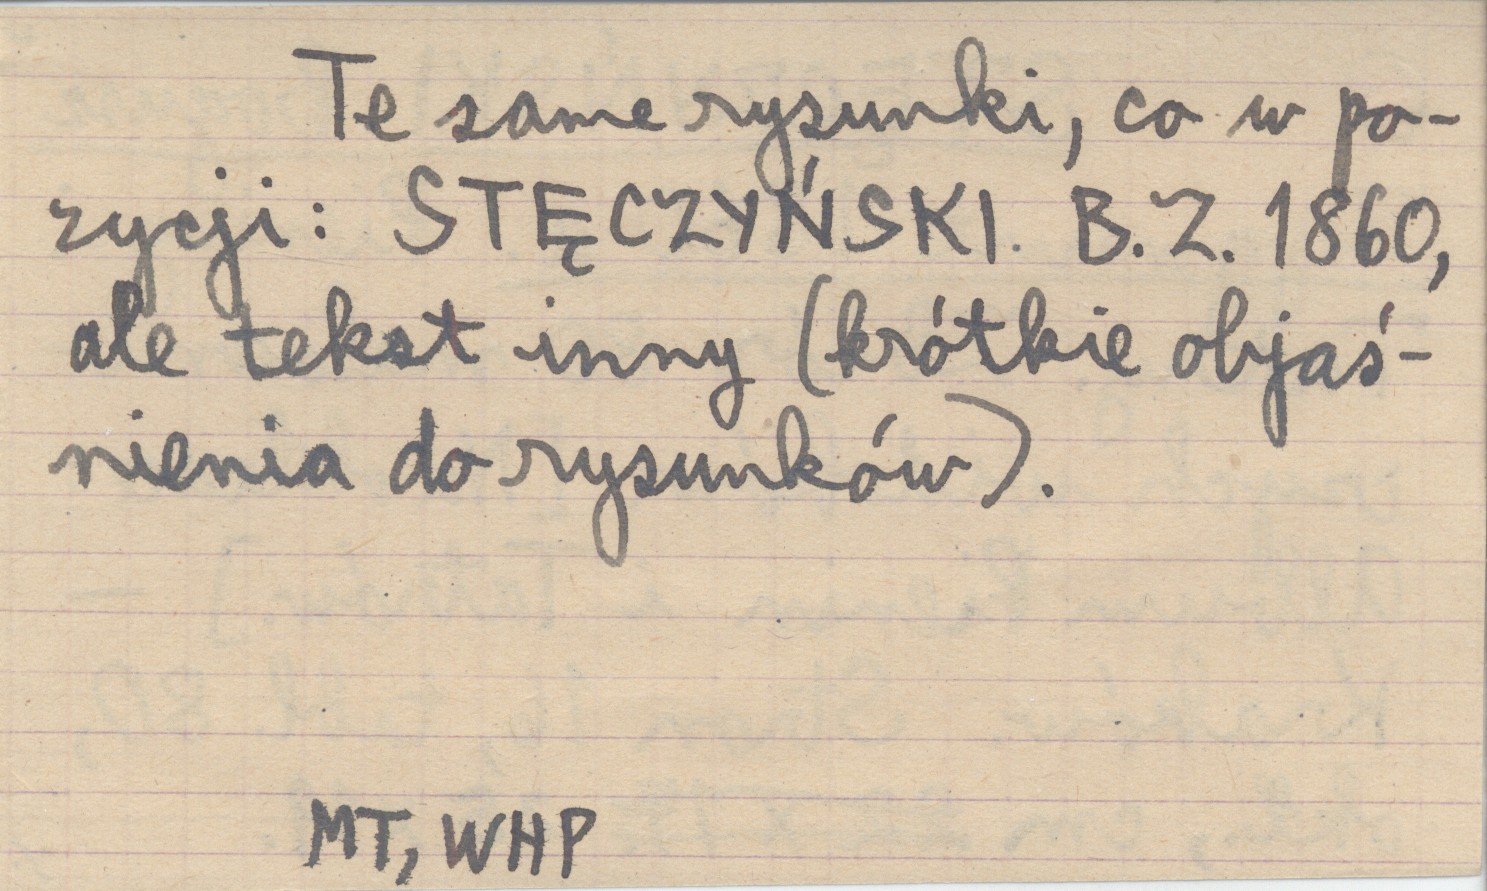 Te same rysunki, co w po-
zycji: STĘCZYŃSKI. B.Z. 1860,
ale tekst inny (krótkie objaś-
nienia do rysunków).
MT, WHP